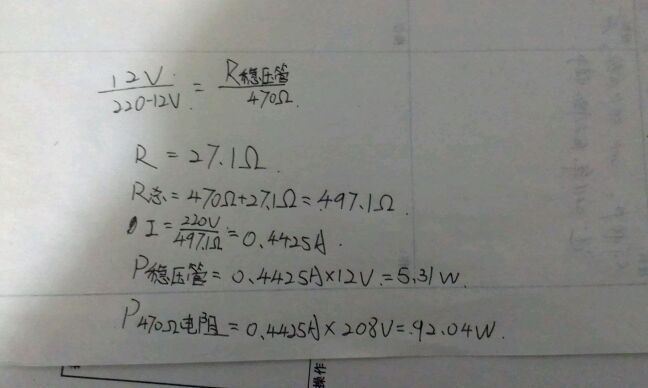 12V/220-12V = R稳压管/470Ω
R = 27.1Ω
R总 = 470Ω+27.1Ω = 497.1Ω
I = 220V/497.1Ω = 0.4425A
P稳压管 = 0.4425A×12V = 5.31W
P470Ω电阻 = 0.4425A×208V = 92.04W
操作